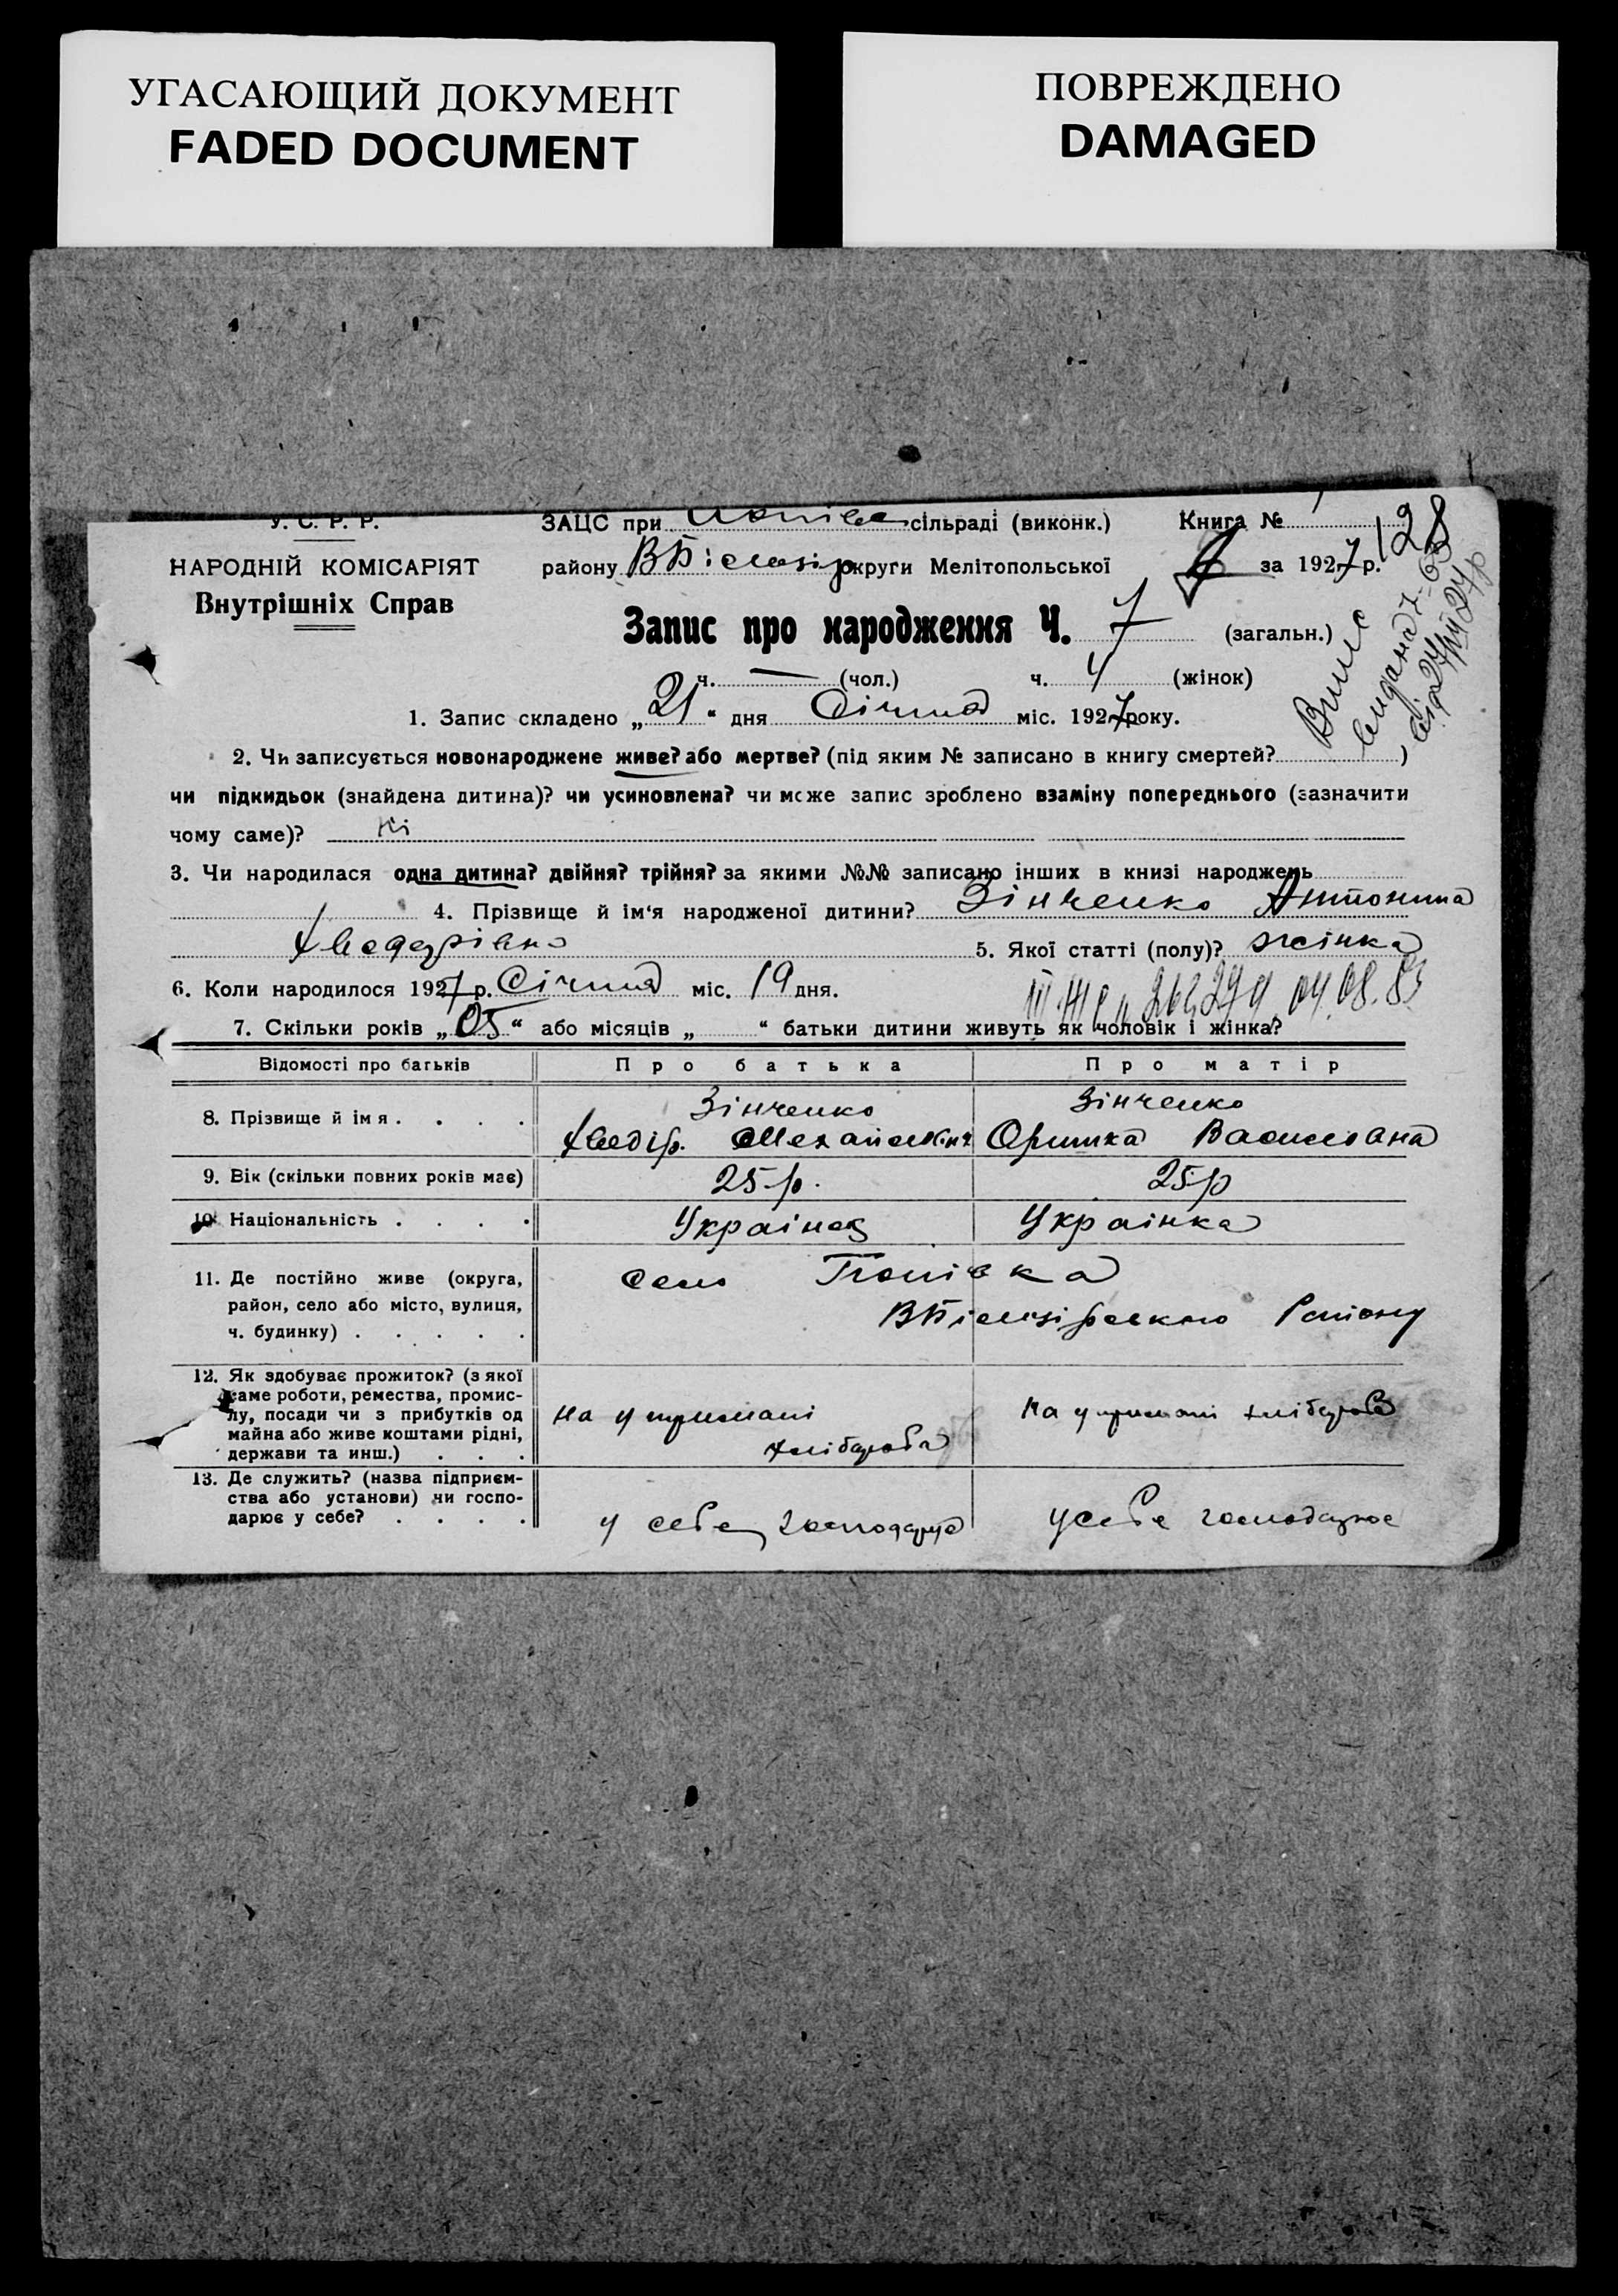 УГАСАЮЩИЙ ДОКУМЕНТ
FADED DOCUMENT
ПОВРЕЖДЕНО
DAMAGED
У. С. Р. Р.
НАРОДНІЙ КОМІСАРІЯТ
Внутрішніх Справ
ЗАЦС при сільраді (виконк.) Книга №
128
району округи Мелітопольської за 1927 р.
Запис про народження Ч. 7 (загальн.)
ч. — (чол.) ч. 4 (жінок)
1. Запис складено „21“ дня Січня міс. 1927 року.
2. Чи записується новонароджене живе? або мертве? (під яким № записано в книгу смертей? )
чи підкидьок (знайдена дитина)? чи усиновлена? чи може запис зроблено взаміну попереднього (зазначити
чому саме)? Ні
3. Чи народилася одна дитина? двійня? трійня? за якими №№ записано інших в книзі народжень
4. Прізвище й ім‘я народженої дитини? Зінченко Антонина
Хведорівно 5. Якої статті (полу)? жінка
6. Коли народилося 1927 р. Січня міс. 19 дня.
7. Скільки років „05“ або місяців „ “ батьки дитини живуть як чоловік і жінка?
Відомості про батьків Про батька Про матір
8. Прізвище й імя . . . . Зінченко Зінченко
Хведір. Оришка
9. Вік (скільки повних років має) 25 р. 25 р
10. Національність . . . . Украінец Украінка
11. Де постійно живе (округа,
район, село або місто, вулиця,
ч. будинку) . . . . .
село Попівка
ВБілозірського Району
12. Як здобуває прожиток? (з якої
саме роботи, ремества, промис-
лу, посади чи з прибутків од
майна або живе коштами рідні,
держави та инш.) . . .
на утримані
хлібороба
на утримані хлібороба
13. Де служить? (назва підприєм-
ства або установи) чи госпо-
дарює у себе? . . . .
у себе
у себе господарює